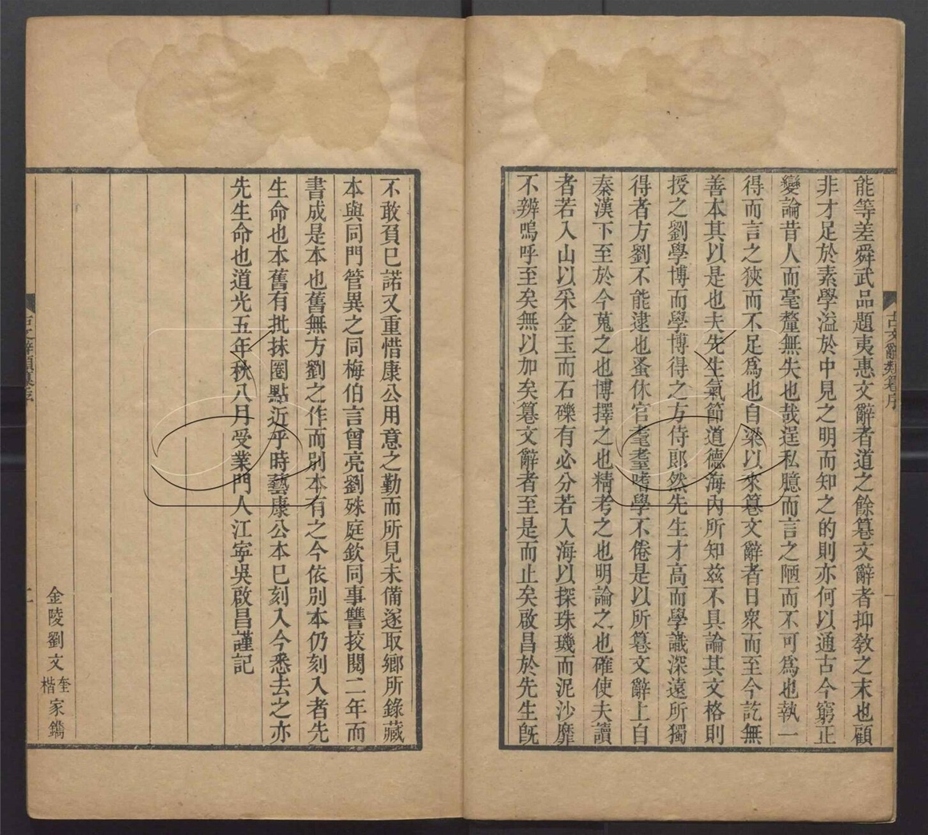 能等差舜武品題夷惠文辭者道之餘纂文辭者抑敎之末也顧
非才足於素學溢於中見之明而知之的則亦何以通古今窮正
變論昔人而毫釐無失也哉逞私臆而言之陋而不可爲也執一
得而言之狹而不足爲也自梁以來纂文辭者日衆而至今訖無
善本其以是也夫先生氣節道德海內所知茲不具論其文格則
授之劉學博而學博得之方侍郎然先生才高而學識深遠所獨
得者方劉不能逮也蚤休官耄耋嗜學不倦是以所纂文辭上自
秦漢下至於今蒐之也博擇之也精考之也明論之也確使夫讀
者若入山以采金玉而石礫有必分若入海以探珠璣而泥沙靡
不辨嗚呼至矣無以加矣纂文辭者至是而止矣啟昌於先生旣
古文辭類纂序
一
不敢負已諾又重惜康公用意之勤而所見未備遂取鄉所錄藏
本與同門管異之同梅伯言曾亮劉殊庭欽同事讐挍閱二年而
書成是本也舊無方劉之作而別本有之今依別本仍刻入者先
生命也本舊有批抹圈點近乎時藝康公本已刻入今悉去之亦
先生命也道光五年秋八月受業門人江寧吳啟昌謹記
金陵劉文奎楷家鐫
二